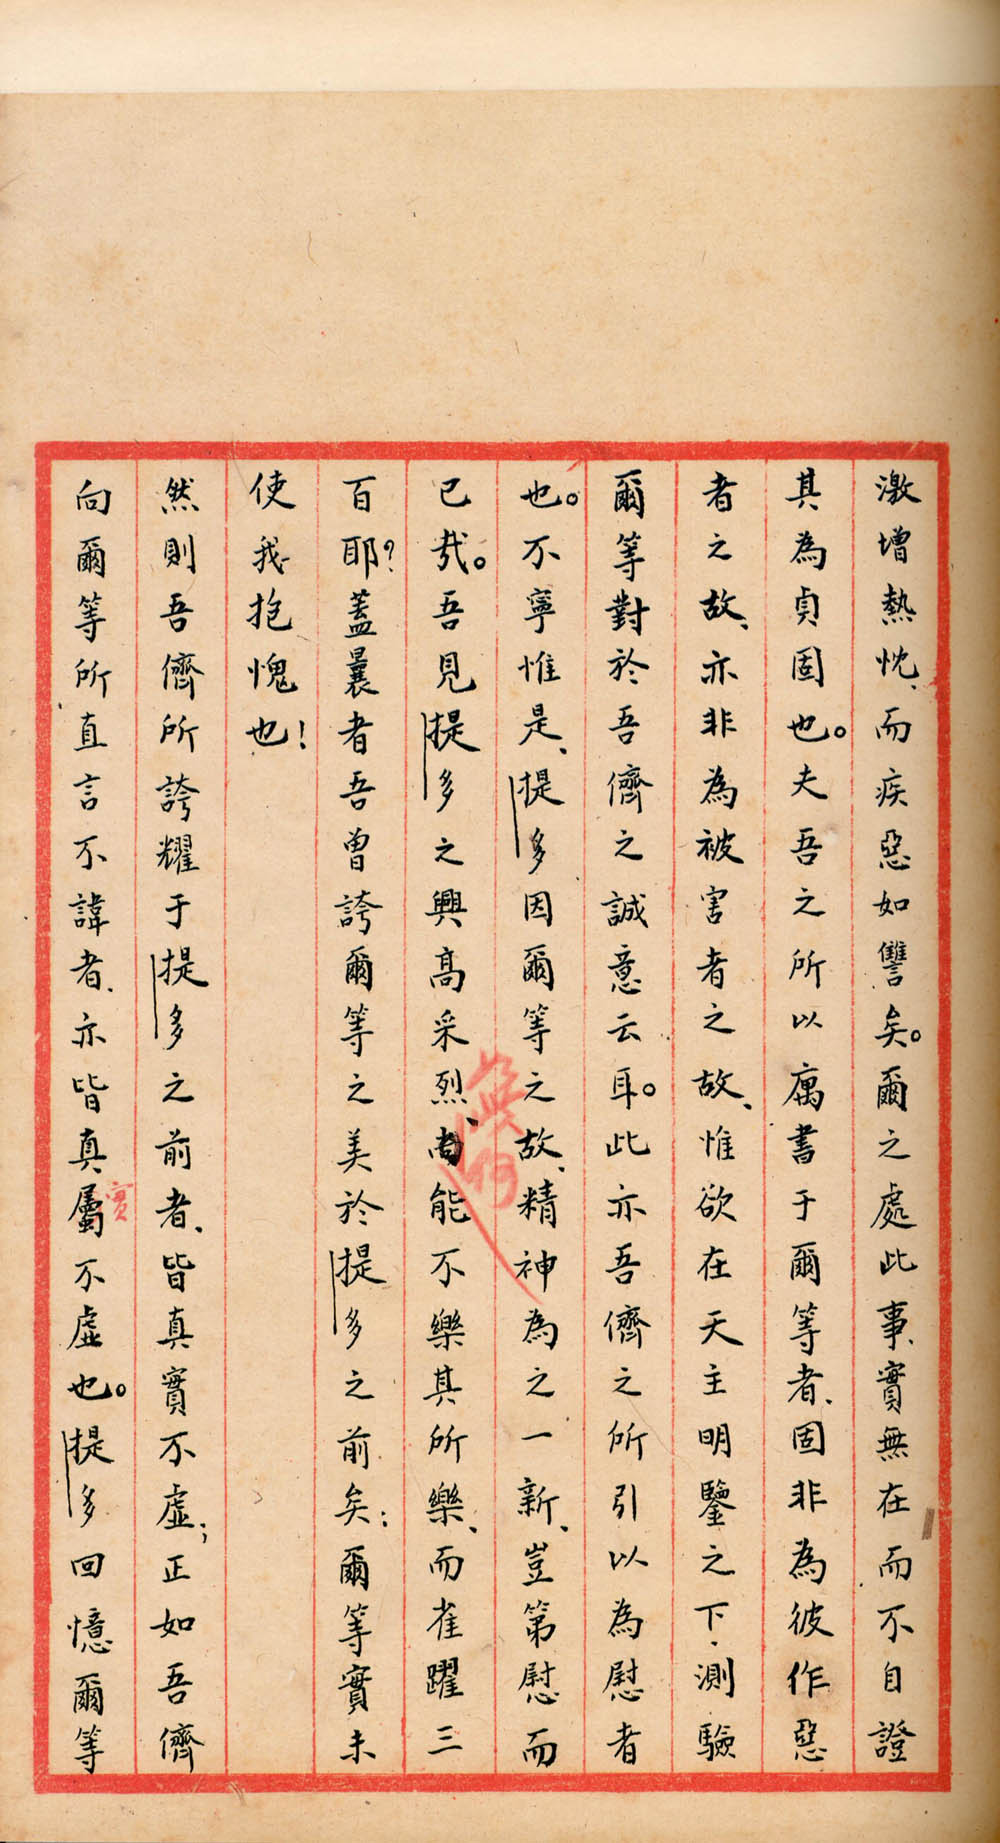 激增熱忱、而疾惡如讐矣。爾之處此事、實無在而不自證
其為貞固也。夫吾之所以厲書于爾等者、固非為彼作惡
者之故、亦非為被害者之故、惟欲在天主明鑒之下、測驗
爾等對於吾儕之誠意云耳。此亦吾儕之所引以為慰者
也。不寧惟是、提多因爾等之故、精神為之一新、豈第慰而
已哉。吾見提多之興高采烈、尚能不樂其所樂、而雀躍三
百耶？蓋曩者吾曾誇爾等之美於提多之前矣；爾等實未
使我抱愧也！
然則吾儕所誇耀于提多之前者、皆真實不虛；正如吾儕
向爾等所直言不諱者、亦皆真屬不虛也。提多回憶爾等
實